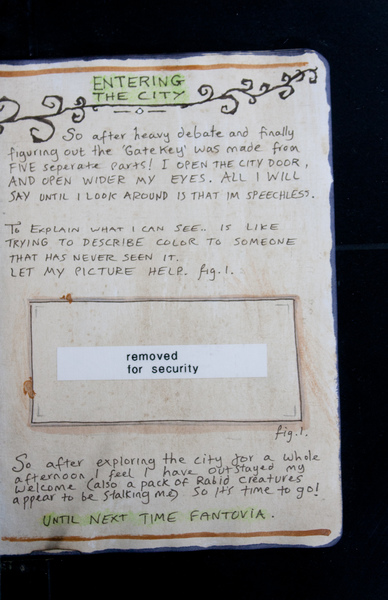 ENTERING
THE CITY
So after heavy debate and finally
figuring out the 'Gatekey' was made from
FIVE seperate parts! I OPEN THE CITY DOOR,
AND OPEN WIDER MY EYES. ALL I WILL
SAY UNTIL I LOOK AROUND IS THAT IM SPEECHLESS.
To EXPLAIN WHAT I CAN SEE.. IS LIKE
TRYING TO DESCRIBE COLOR TO SOMEONE
THAT HAS NEVER SEEN IT.
LET MY PICTURE HELP. fig.1.
removed
for security
fig.1.
So after exploring the city for a whole
afternoon I feel I have outstayed my
welcome (also a pack of Rabid creatures
appear to be stalking me) so it's time to go!
UNTIL NEXT TIME FANTOVIA.